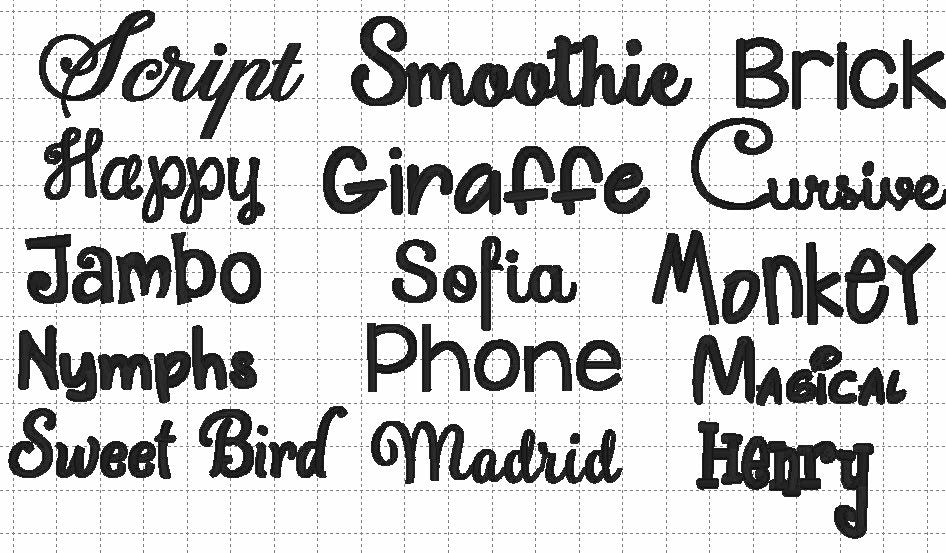 Script Smoothie Brick
Happy Giraffe Cursive
Jambo Sofia Monkey
Nymphs Phone Magical
Sweet Bird Madrid Henry